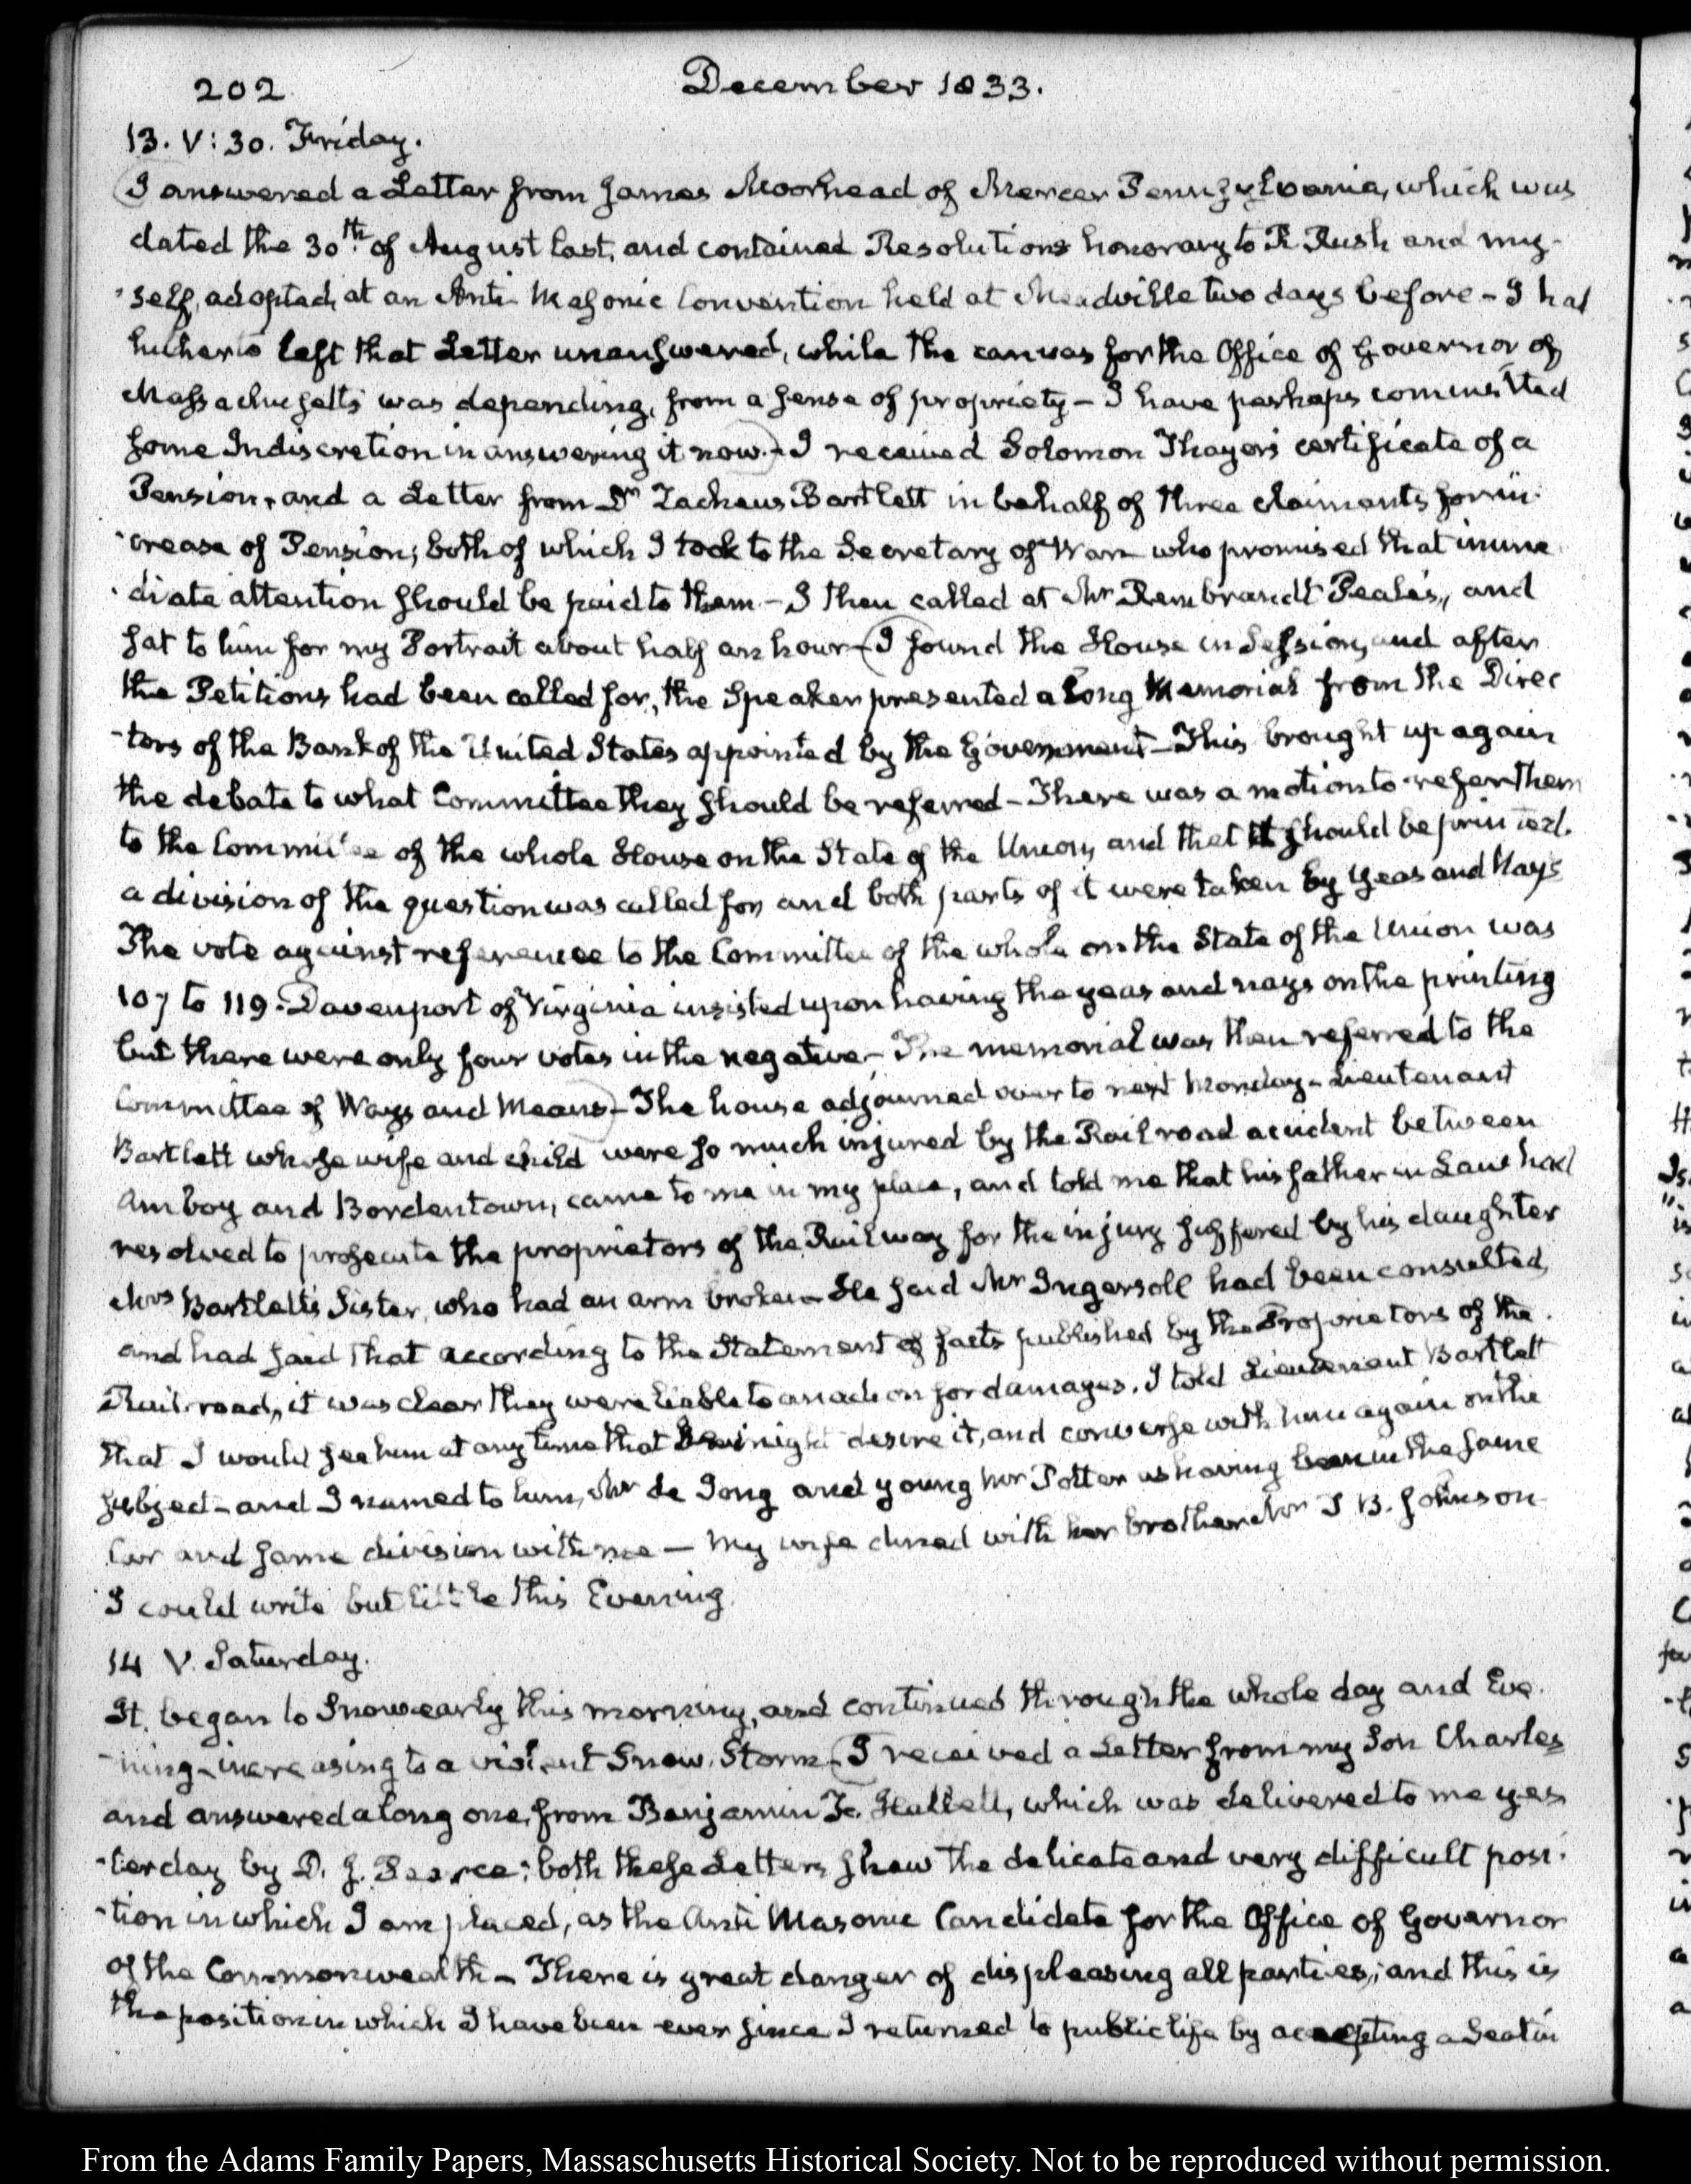 202 December 1833.
13. V:30. Friday.
I answered a Letter from James Moorhead of Mercer Pennsylvania, which was
dated the 30th. of August last, and contained Resolutions honorary to R. Rush and my-
-self, adopted, at an Anti-Masonic Convention held at Meadville two days before - I had
hitherto left that Letter unanswered, while the canvas for the Office of Governor of
Massachusetts was depending, from a sense of propriety - I have perhaps committed
some Indiscretion in answering it now. - I received Solomon Thayer's certificate of a
Pension, and a Letter from Dr Zacheus Bartlett in behalf of three claimants for in-
-crease of Pension; both of which I took to the Secretary of War who promised that imme
-diate attention should be paid to them - I then called at Mr Rembrandt Peale's, and
sat to him for my Portrait about half an hour - I found the House in Session, and after
the Petitions had been called for, the Speaker presented a long Memorial from the Direc
-tors of the Bank of the United States appointed by the Government - This brought up again
the debate to what Committee they should be referred - There was a motion to refer them
to the Committee of the whole House on the State of the Union, and that it should be printed.
a division of the question was called for, and both parts of it were taken by Yeas and Nays
The vote against reference to the Committee of the whole on the State of the Union was
107 to 119. Davenport of Virginia insisted upon having the yeas and nays on the printing
but there were only four votes in the negative - The memorial was then referred to the
Committee of Ways and Means - The house adjourned over to next Monday - Lieutenant
Bartlett whose wife and child were so much injured by the Rail road accident between
Amboy and Bordentown, came to me in my place, and told me that his father in Law had
resolved to prosecute the proprietors of the Railway for the injury suffered by his daughter
Mrs Bartlett's Sister, who had an arm broken - He said Mr Ingersoll had been consulted,
and had said that according to the Statement of facts published by the Proprietors of the
Rail-road, it was clear they were liable to an action for damages. I told Lieutenant Bartlett
that I would see him at any time that he might desire it, and converse with him again on the
subject - and I named to him, Mr de Yong and young Mr Potter as having been in the same
Car and same division with me - My wife dined with her brother Mr T B. Johnson
I could write but little this Evening.
14 V. Saturday.
It began to Snow early this morning, and continued through the whole day and Eve-
-ning - increasing to a violent Snow Storm - I received a Letter from my Son Charles
and answered a long one, from Benjamin F. Hallett, which was delivered to me yes
-terday by D. J. Pearce: both these Letters shew the delicate and very difficult posi-
-tion in which I am placed, as the Anti Masonic Candidate for the Office of Governor
of the Commonwealth - There is great danger of displeasing all parties; and this is
the position in which I have been ever since I returned to public life by accepting a Seat in
From the Adams Family Papers, Massaschusetts Historical Society. Not to be reproduced without permission.